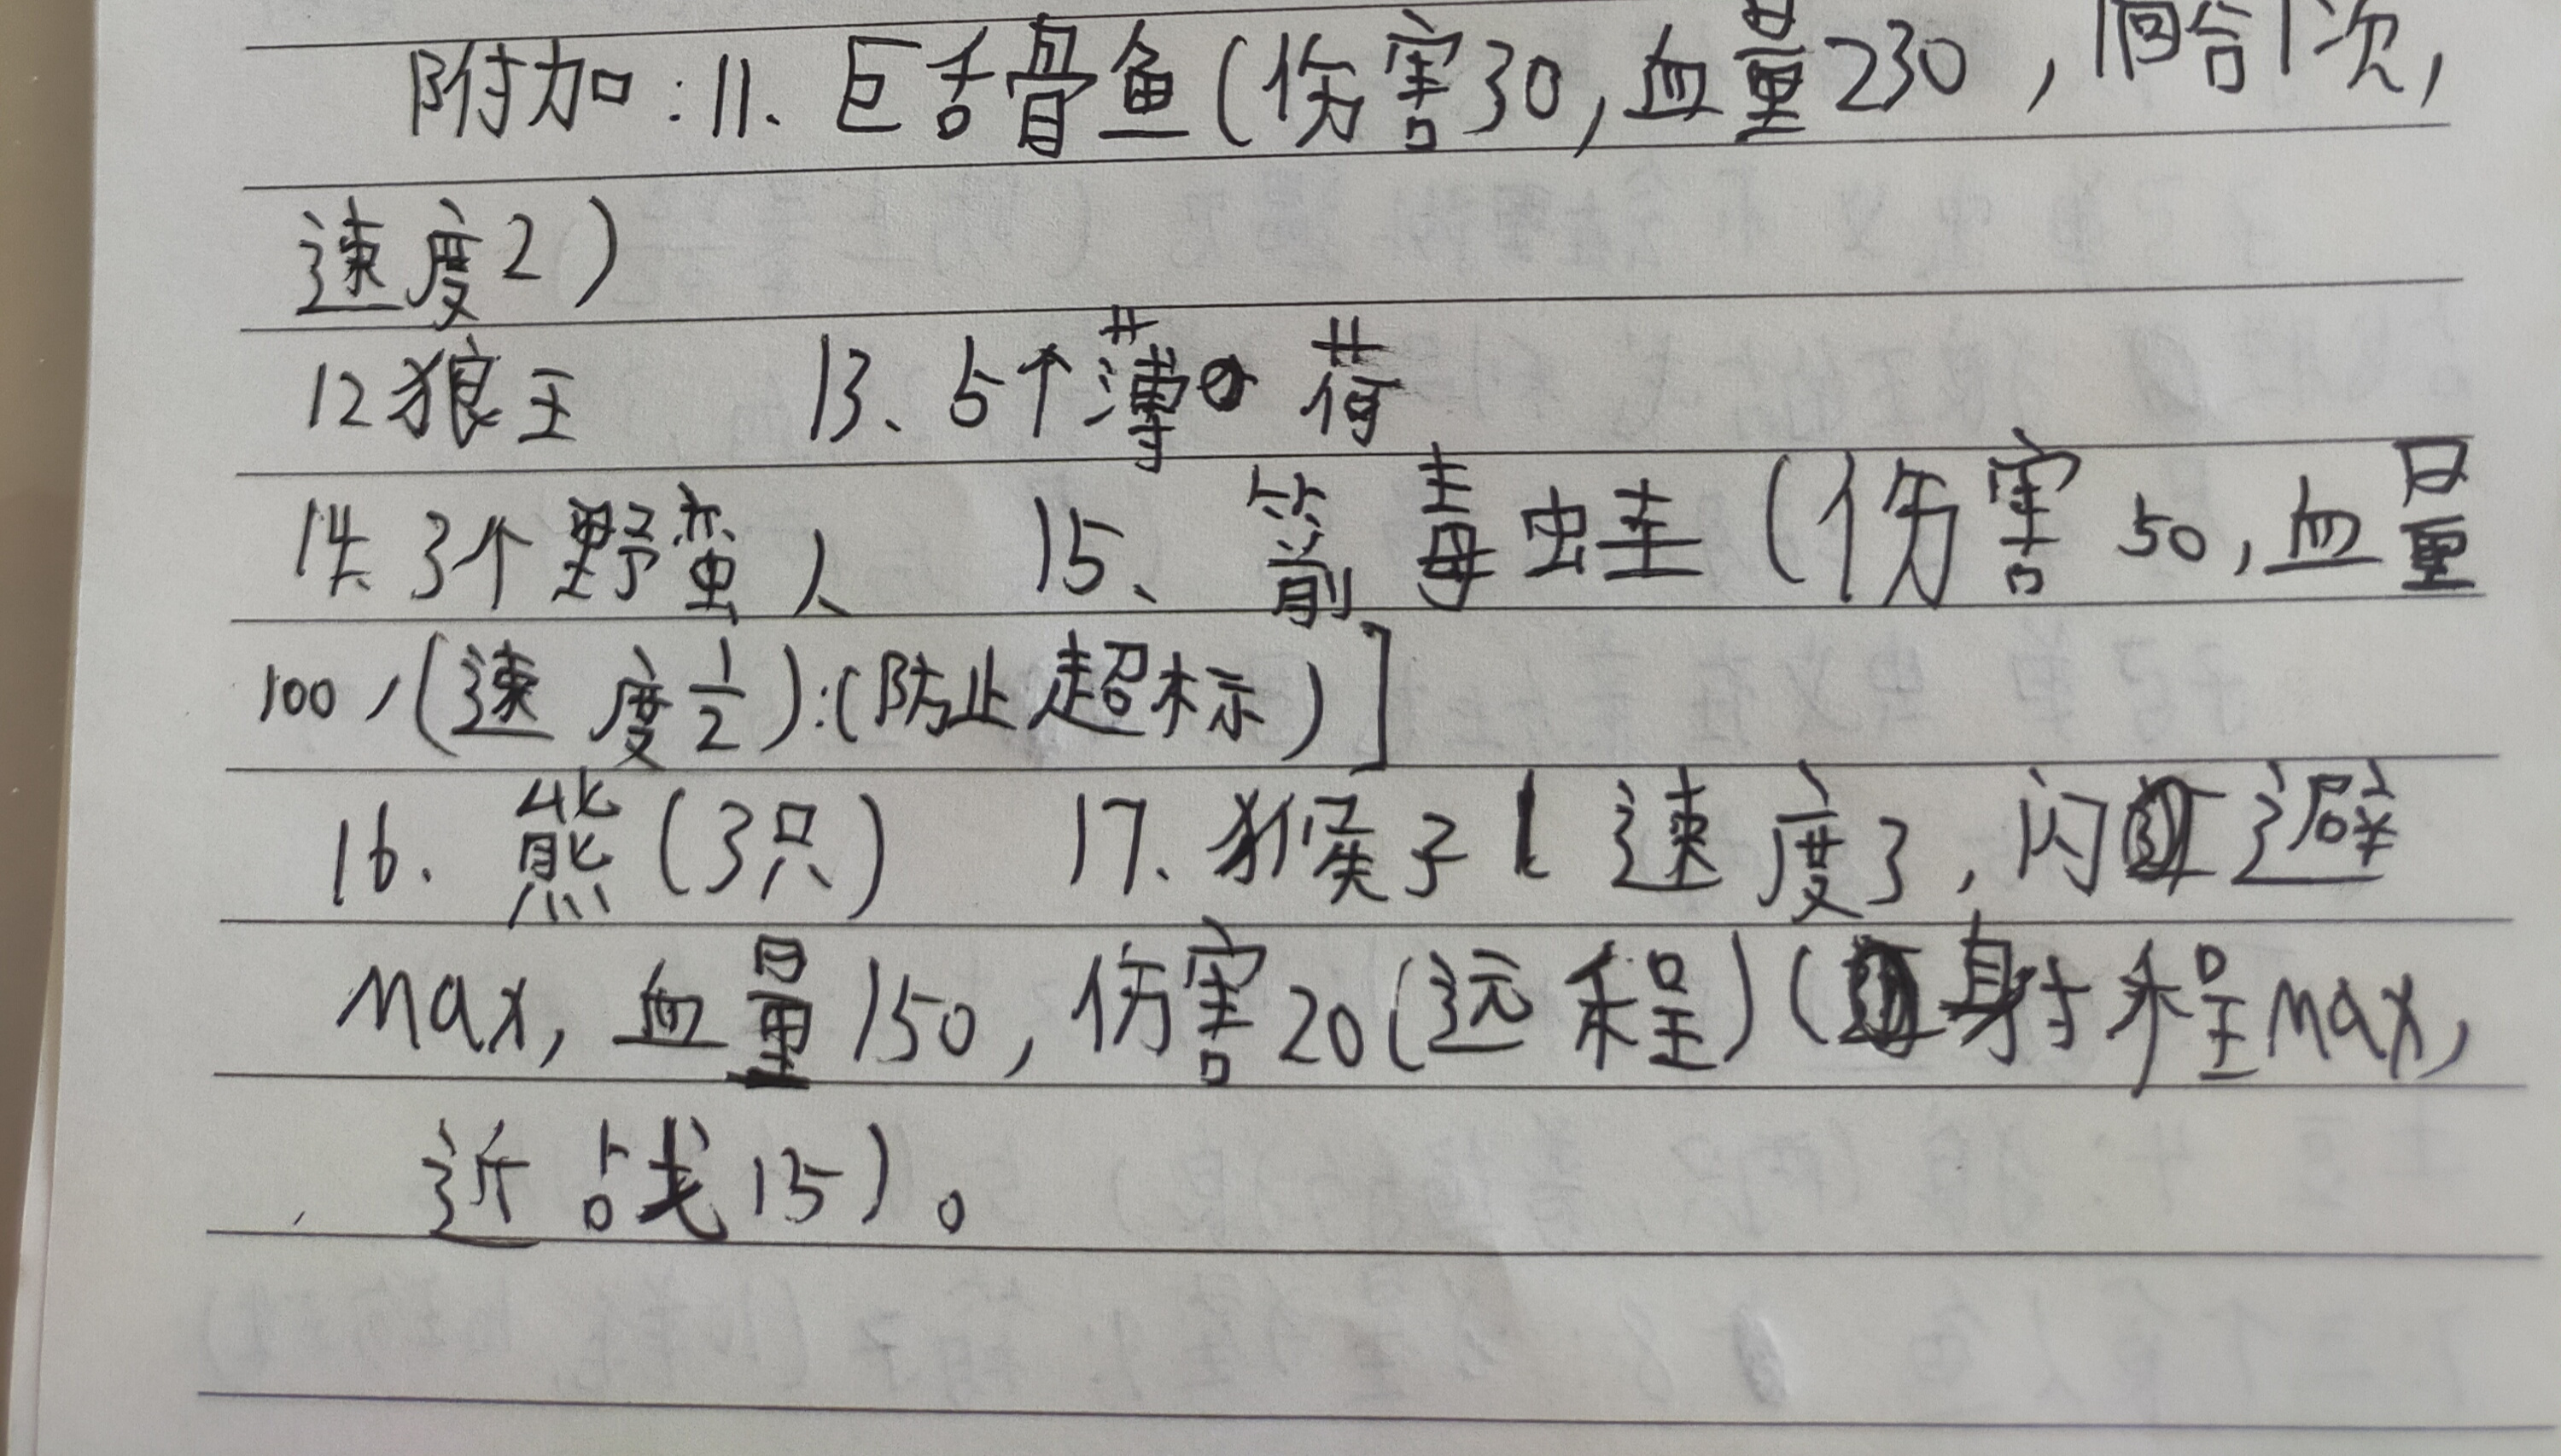 附加:11、巨舌骨鱼(伤害30,血量230,1回合1次,
速度2)
12狼王 13、5个薄荷
14、3个野蛮人 15、箭毒虫蛙(伤害50,血量
100,(速度1/2):(防止超标)]
16.熊(3只) 17、猴子(速度3,闪避
max,血量150,伤害20(远程)(射程max,
近战15)。